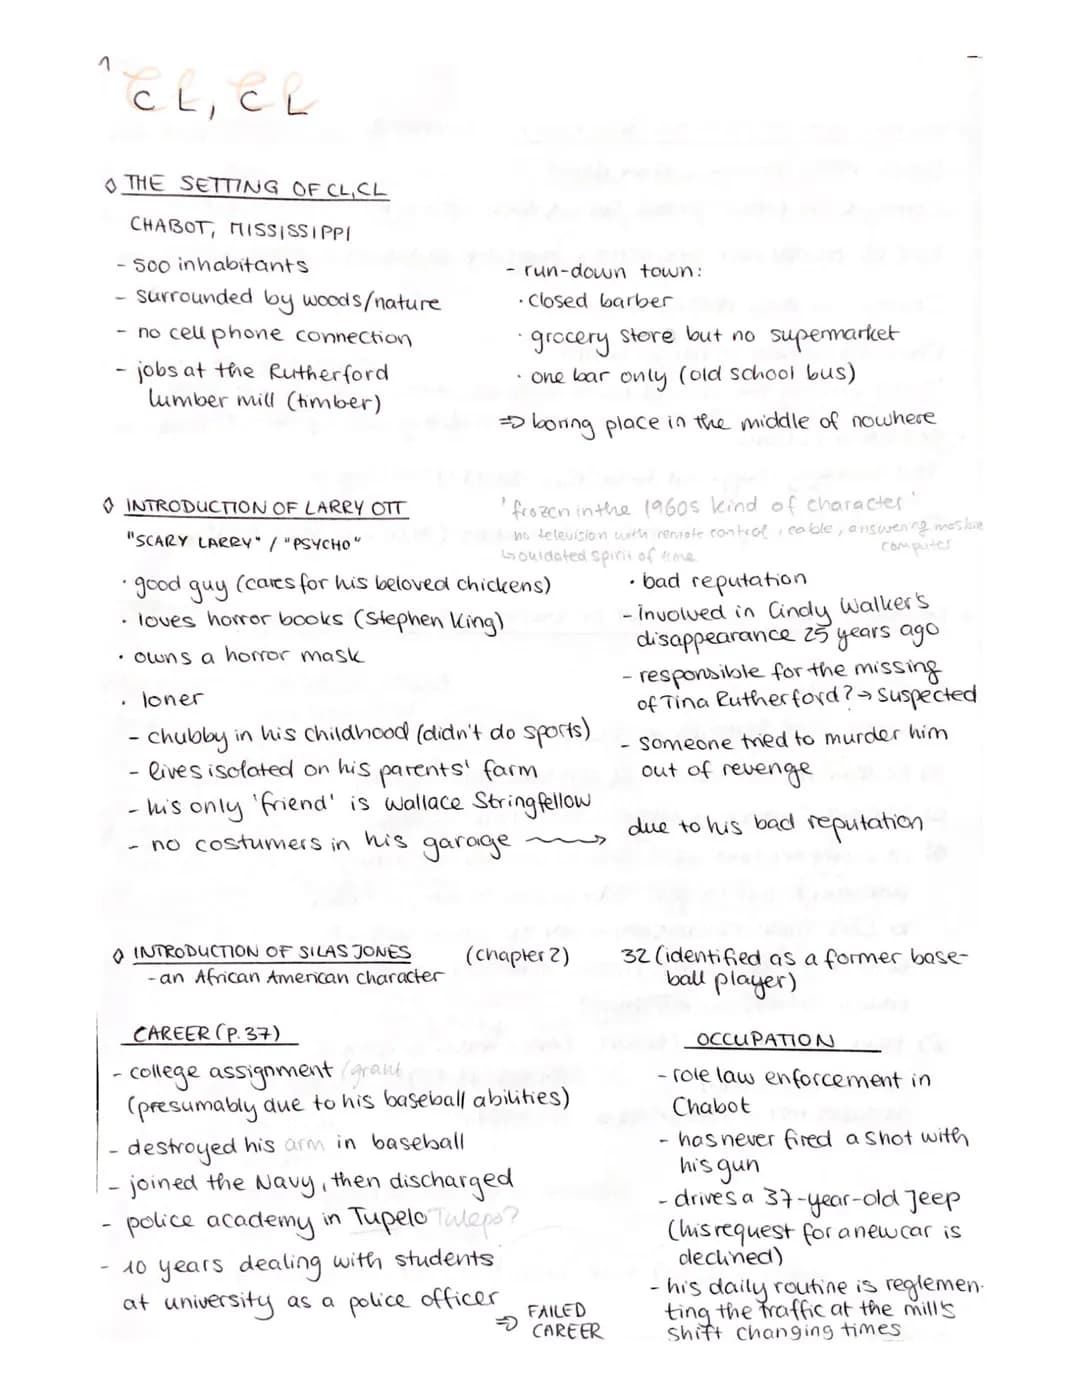 1
CL, CL
◊ THE SETTING OF CL,CL
CHABOT, MISSISSIPPI
- 500 inhabitants
- surrounded by woods/nature
- no cell phone connection
- jobs at the Rutherford
lumber mill (timber)
- run-down town:
· closed barber
· grocery store but no supermarket
· one bar only (old school bus)
⇒ boring place in the middle of nowhere
◊ INTRODUCTION OF LARRY OTT
"SCARY LARRY" / "PSYCHO"
'frozen in the 1960s kind of character'
no television with remote control, cable, answering mashine
computer
↳ outdated spirit of time
· good guy (cares for his beloved chickens)
· loves horror books (Stephen King)
· owns a horror mask
· loner
- chubby in his childhood (didn't do sports)
- lives isolated on his parents' farm
- his only 'friend' is Wallace Stringfellow
- no costumers in his garage →
· bad reputation
- involved in Cindy Walker's
disappearance 25 years ago
- responsible for the missing
of Tina Rutherford? → suspected
- someone tried to murder him
out of revenge
due to his bad reputation
◊ INTRODUCTION OF SILAS JONES (chapter 2) 32 (identified as a former base-
ball player)
- an African American character
CAREER (P. 37)
- college assignment (grant
(presumably due to his baseball abilities)
- destroyed his arm in baseball
- joined the Navy, then discharged
- police academy in Tupelo Tulepo?
- 10 years dealing with students
at university as a police officer
⇒ FAILED
CAREER
OCCUPATION
- role law enforcement in
Chabot
- has never fired a shot with
his gun
- drives a 37-year-old Jeep
(his request for a new car is
declined)
- his daily routine is reglemen-
ting the traffic at the mill's
shift changing times